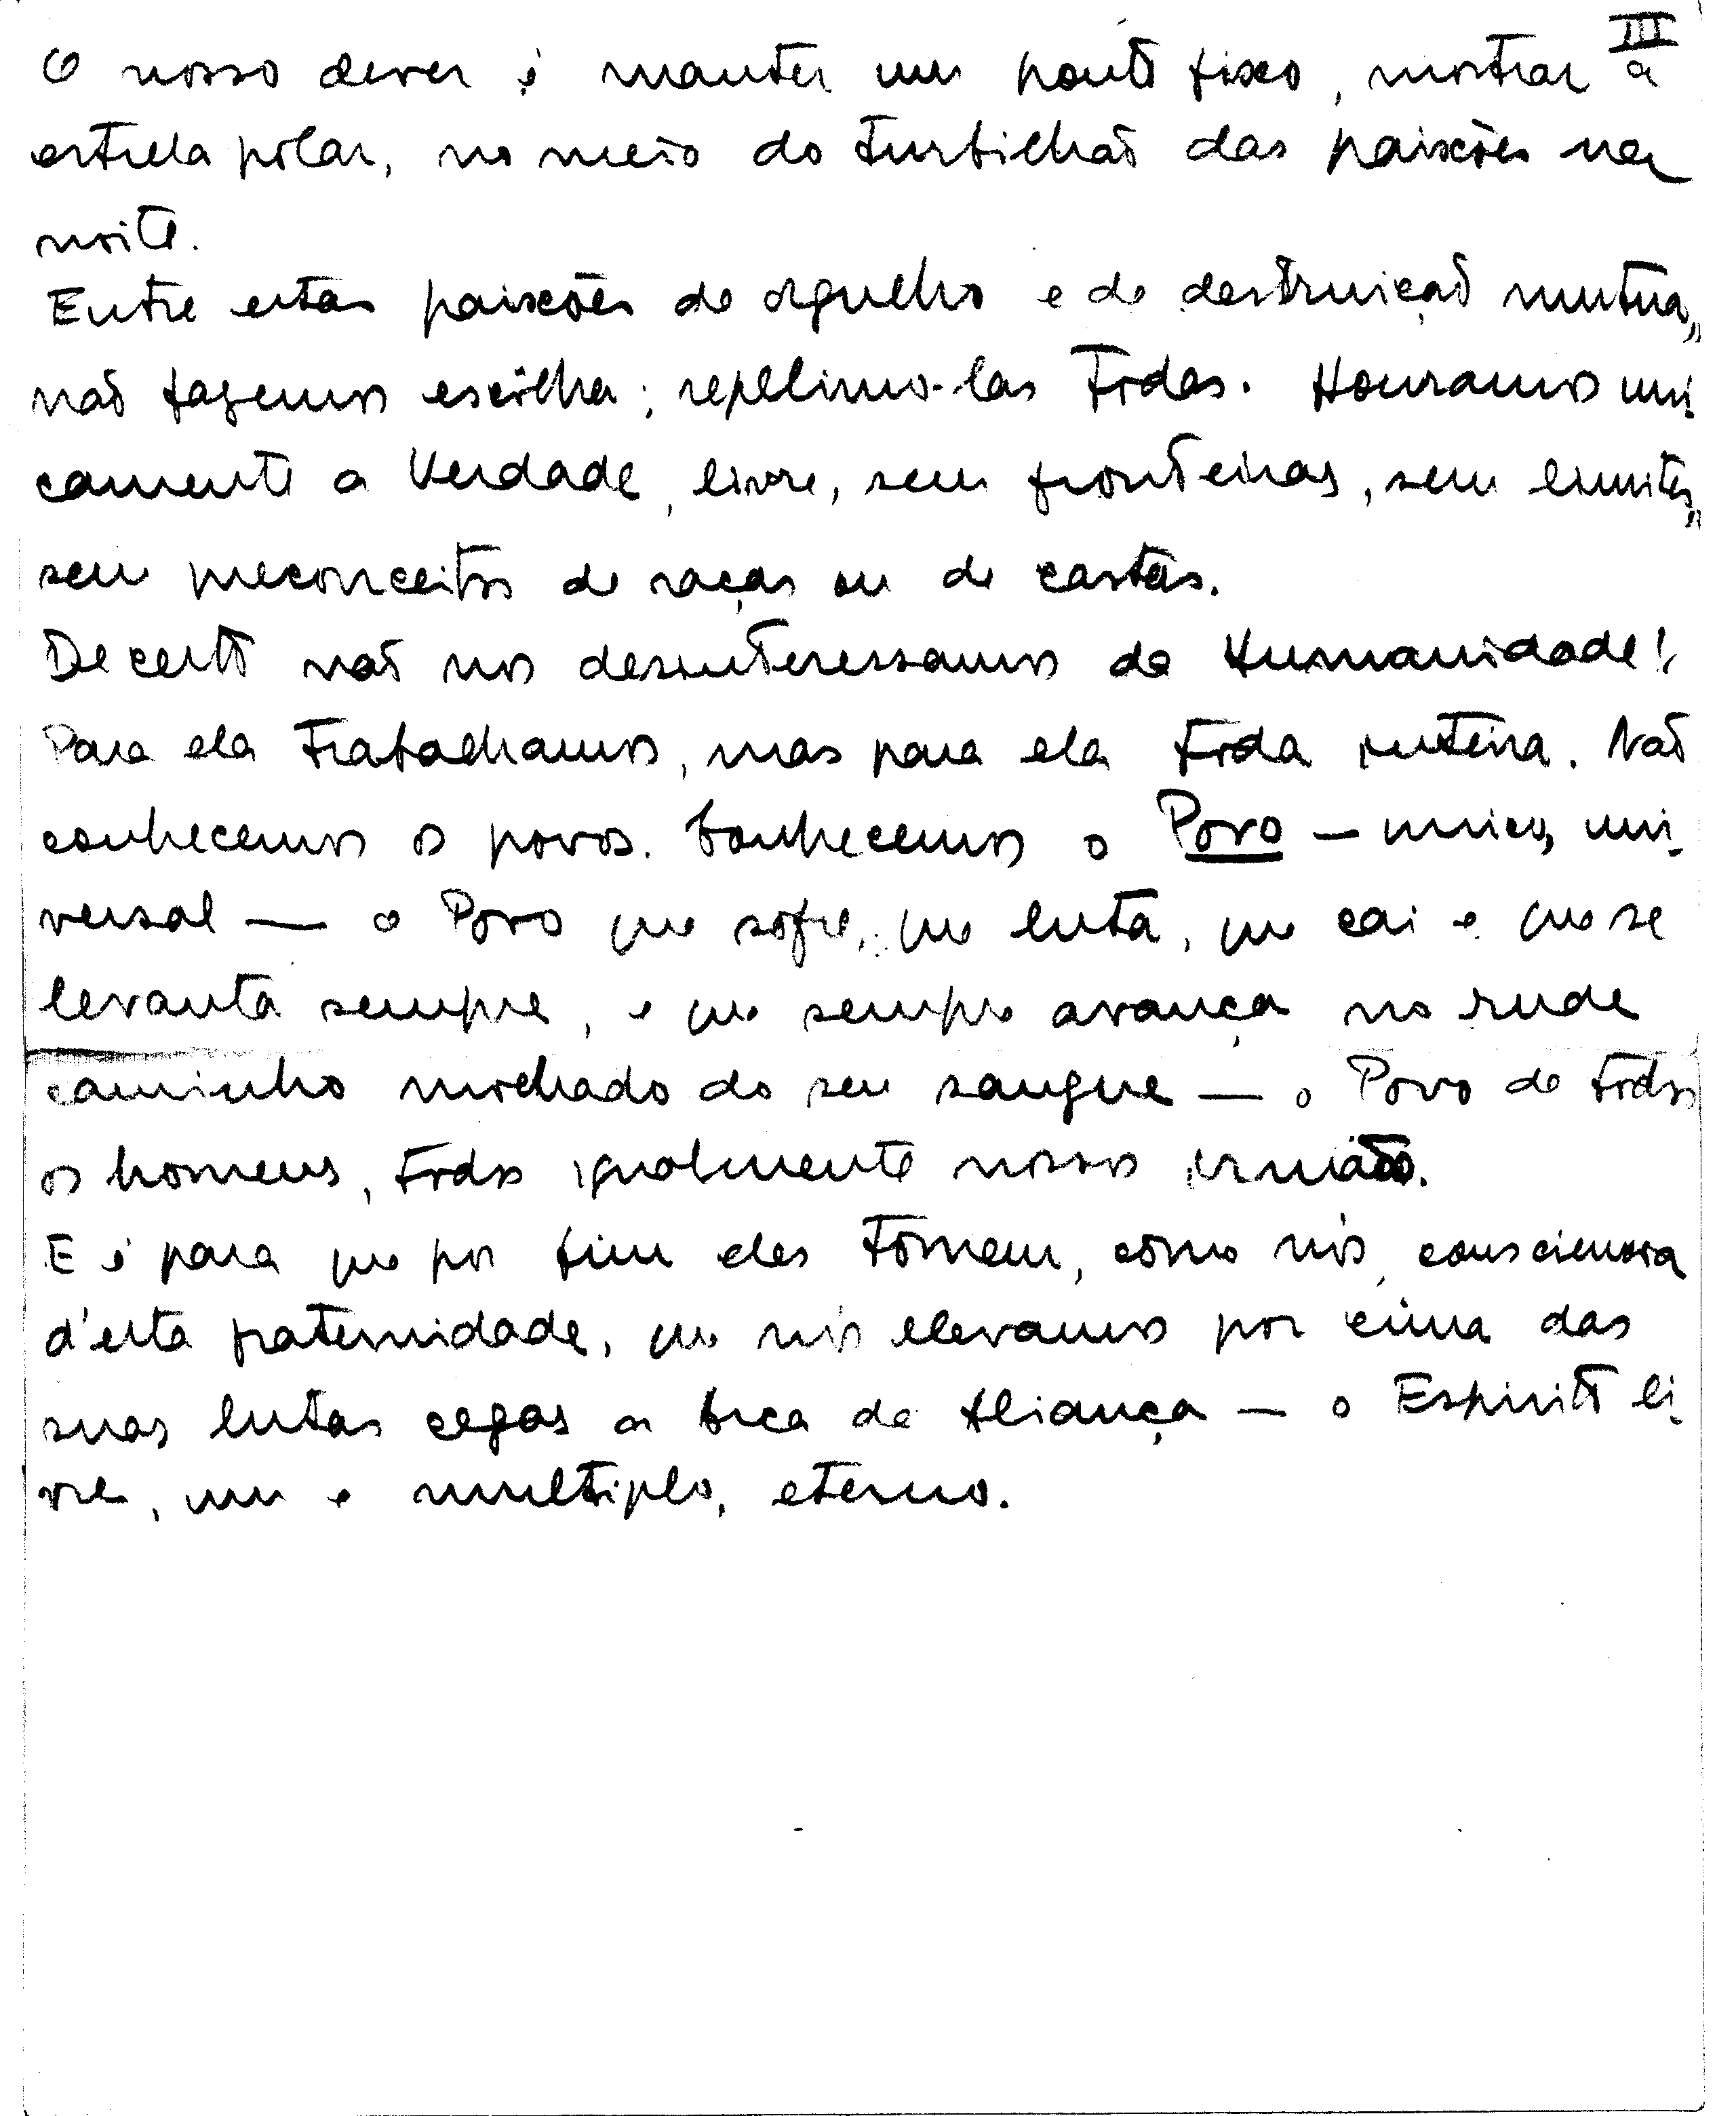 III
O nosso dever é manter um ponto fixo, mostrar a
estrela polar, no meio do turbilhão das paixões na
noite.
Entre estas paixões de orgulho e de destruição mutua,
não fazemos escôlha; repelimo-las todas. Honramos uni-
camente a Verdade, livre, sem fronteiras, sem limites,
sem preconceitos de raças ou de castas.
De certo não nos desinteressamos da Humanidade!
Para ela trabalhamos, mas para ela toda inteira. Não
conhecemos os povos. Conhecemos o Povo — unico, uni-
versal — o Povo que sofre, que luta, que cai e que se
levanta sempre, e que sempre avança no rude
caminho molhado do seu sangue — o Povo de todos
os homens, todos igualmente nossos irmãos.
E é para que por fim eles tomem, como nós, consciencia
d'esta fraternidade, que nós elevamos por cima das
suas lutas cegas a Arca da Aliança — o Espirito li-
vre, um e multiplo, eterno.